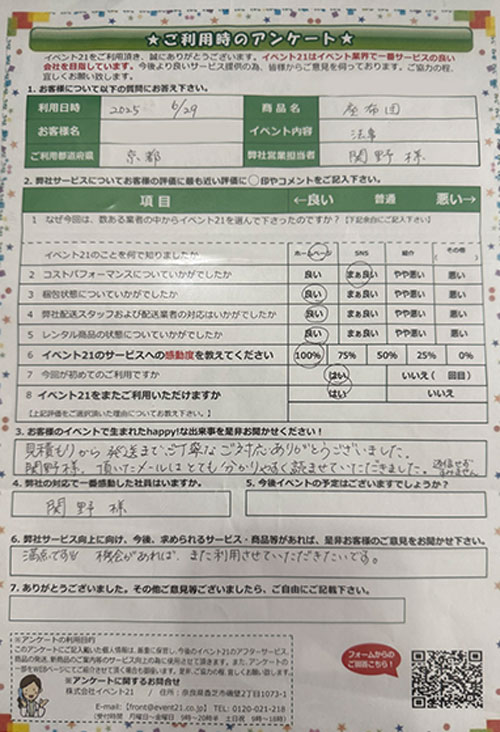 ★ご利用時のアンケート★
イベント21をご利用頂き、誠にありがとうございます。イベント21はイベント業界で一番サービスの良い
会社を目指しています。今後より良いサービス提供の為、皆様からご意見を伺っております。ご協力の程、
宜しくお願い致します。
1. お客様について以下の質問にお答え下さい。
利用日時 2025 6/29 商品名 座布団
お客様名 イベント内容 法事
ご利用都道府県 京都 弊社営業担当者 関野様
2. 弊社サービスについてお客様の評価に最も近い評価に○印やコメントをご記入下さい。
項目 ←良い 普通 悪い→
1 なぜ今回は、数ある業者の中からイベント21を選んで下さったのですか?【下記余白にご記入下さい】
イベント21のことを何で知りましたか ホームページ SNS 紹介 (その他 )
2 コストパフォーマンスについていかがでしたか 良い まぁ良い やや悪い 悪い
3 梱包状態についていかがでしたか 良い まぁ良い やや悪い 悪い
4 弊社配送スタッフおよび配送業者の対応はいかがでしたか 良い まぁ良い やや悪い 悪い
5 レンタル商品の状態についていかがでしたか 良い まぁ良い やや悪い 悪い
6 イベント21のサービスへの感動度を教えてください 100% 75% 50% 25% 0%
7 今回が初めてのご利用ですか はい いいえ( 回目)
8 イベント21をまたご利用いただけますか はい いいえ
【上記評価をご選択頂いた理由についてお答え下さい。】
3. お客様のイベントで生まれたhappy!な出来事を是非お聞かせください!
見積もりから発送まで、ご丁寧なご対応ありがとうございました。
関野様、頂いたメールはとても分かりやすく読ませていただきました。返信せずすみません
4. 弊社の対応で一番感動した社員はいますか。
関野様
5. 今後イベントの予定はございますでしょうか?
6. 弊社サービス向上に向け、今後、求められるサービス・商品等があれば、是非お客様のご意見をお聞かせ下さい。
満点です!! 機会があれば、また利用させていただきたいです。
7. ありがとうございました。その他ご意見等ございましたら、ご自由にご記載下さい。
※アンケートの利用目的
このアンケートにご記入戴いた個人情報は、厳重に保管し、今後のイベント21のアフターサービス、
商品の発送、新商品のご案内等のサービス向上の為に使用させて頂きます。また、アンケートの
一部をWEBページにてご紹介させて頂く場合も御座います。是非、ご協力の程、宜しくお願い致します。
※アンケートに関するお問合せ
株式会社イベント21 / 住所:奈良県香芝市磯壁2丁目1073-1
E-mail:【front@event21.co.jp】 TEL: 0120-021-218
(受付時間 月曜日~金曜日 9時~20時半 土日祝 9時~18時)
フォームからの
ご回答こちら!